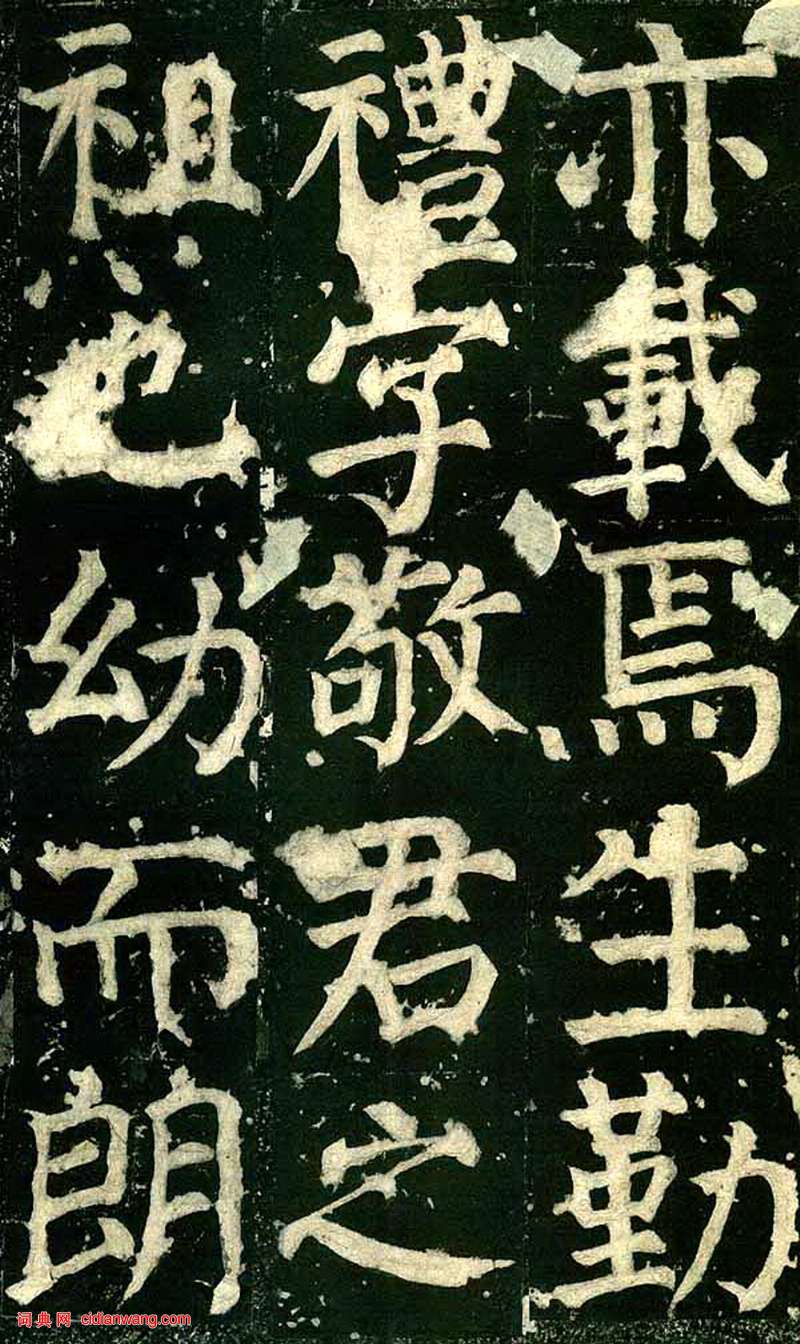 亦載焉生勤
禮字敬君之
祖也幼而朗
词典网 cidianwang.com